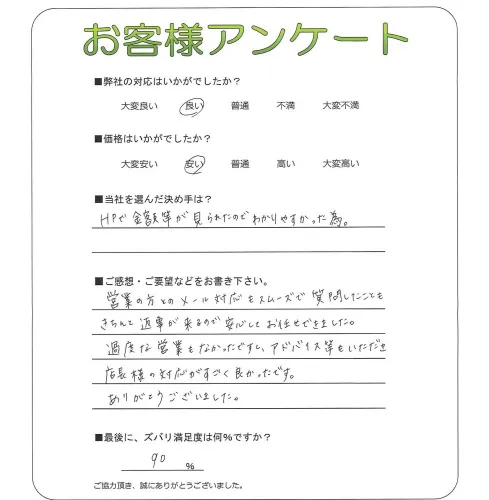 お客様アンケート
■弊社の対応はいかがでしたか？
大変良い 良い 普通 不満 大変不満
■価格はいかがでしたか？
大変安い 安い 普通 高い 大変高い
■当社を選んだ決め手は？
HPで金額等が見られたのでわかりやすかった為。
■ご感想・ご要望などをお書き下さい。
営業の方とのメール対応もスムーズで質問したことも
きちんと返事が来るので安心してお任せできました。
過度な営業もなかったですし、アドバイス等もいただき
店長様の対応がすごく良かったです。
ありがとうございました。
■最後に、ズバリ満足度は何%ですか？
90 %
ご協力頂き、誠にありがとうございました。